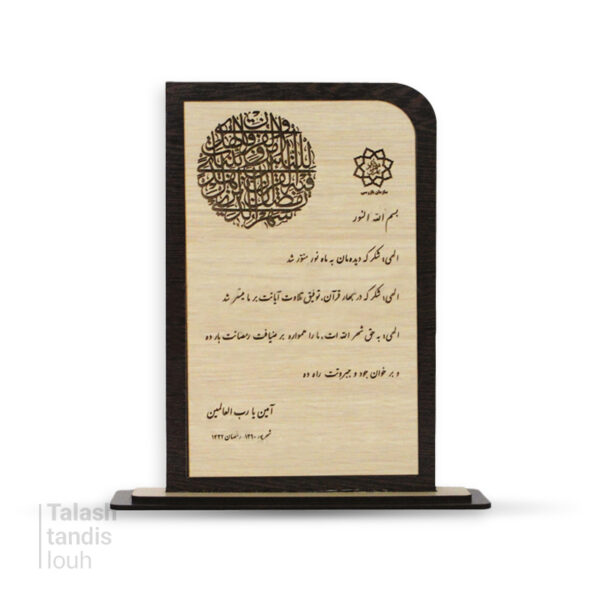 سازمان بازرسی
بسم الله النور
الهی؛ شکر که دیده‌مان به ماه نور منور شد
الهی؛ شکر که در بهار قرآن، توفیق تلاوت آیاتت بر ما میسر شد
الهی؛ به حق شهر الله ات، ما را همواره بر ضیافت رمضانت بار ده
و بر خوان جود و جبروتت راه ده
آمین یا رب العالمین
شهریور ۱۳۹۰ رمضان ۱۴۳۲
Talash
tandis
louh